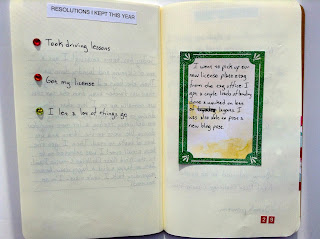 RESOLUTIONS I KEPT THIS YEAR
Took driving lessons
Got my license
I let a lot of things go
I went to pick up our
new license plate +tag
from the tag office. I
got a couple loads of laundry
done + worked on box
of layouts. I
was also able to post a
new blog post.
29